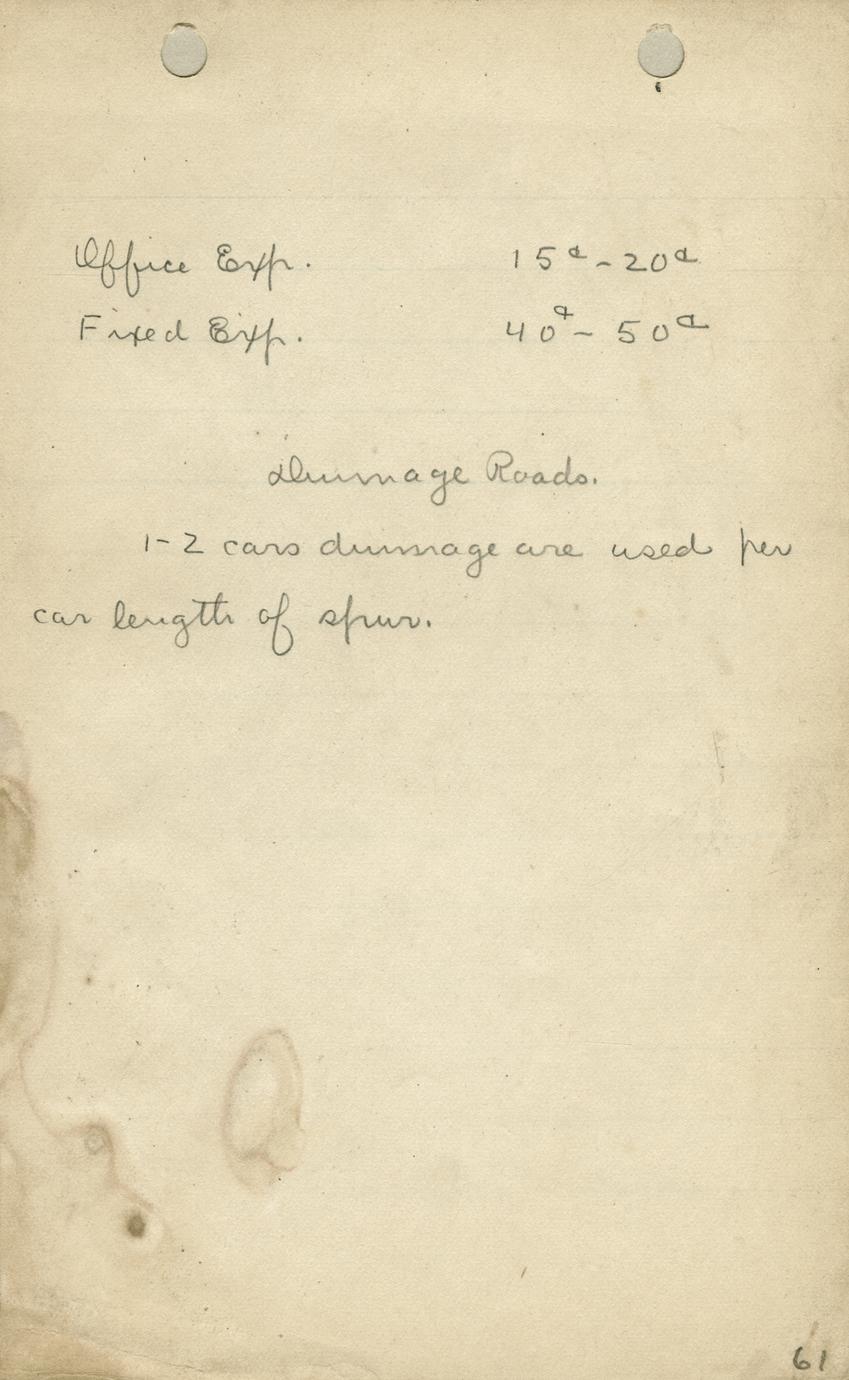 Office Exp. 15¢-20¢
Fixed Exp. 40¢-50¢
Dunnage Roads.
1-2 cars dunnage are used per
car length of spur.
61